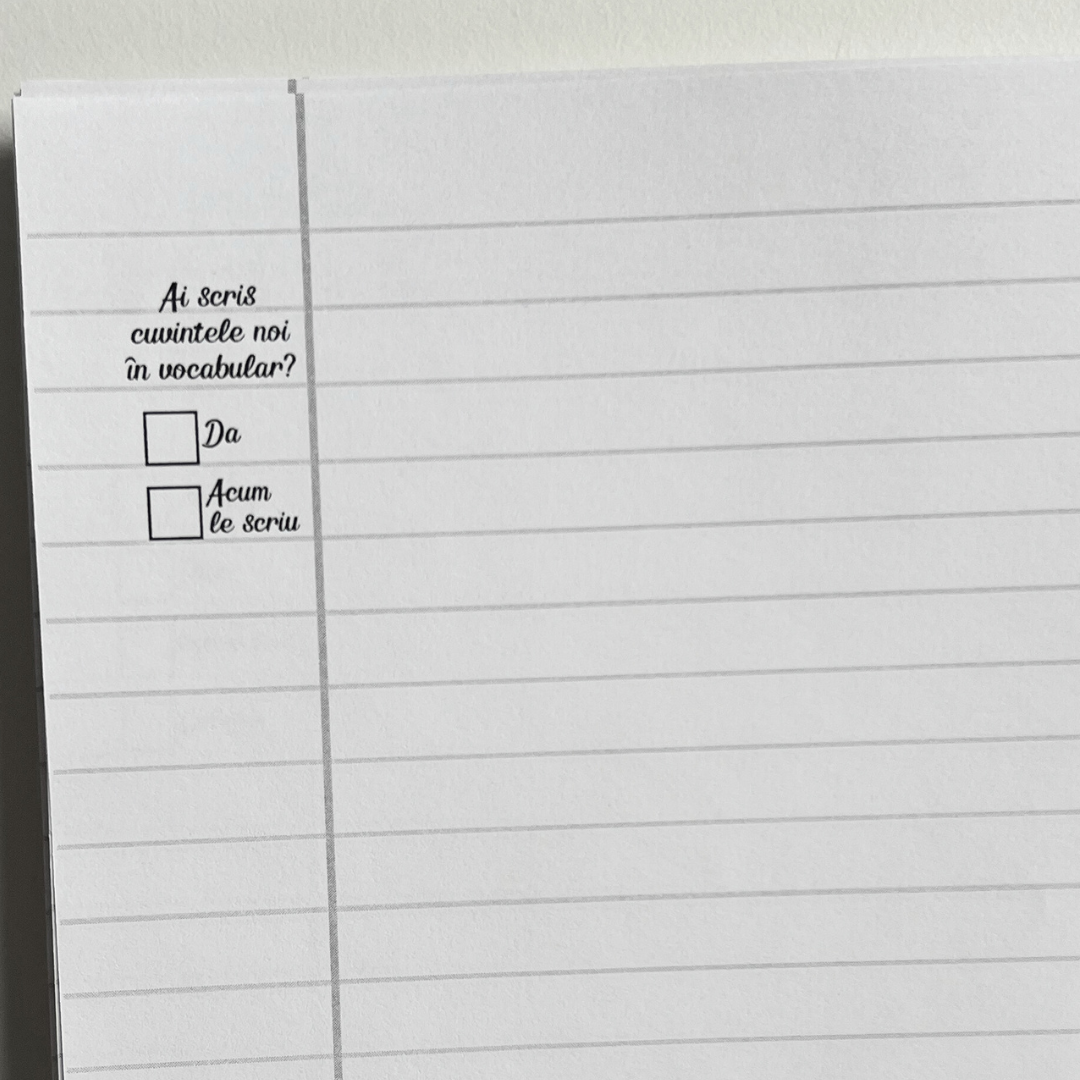 Ai scris
cuvintele noi
în vocabular?
Da
Acum
le scriu